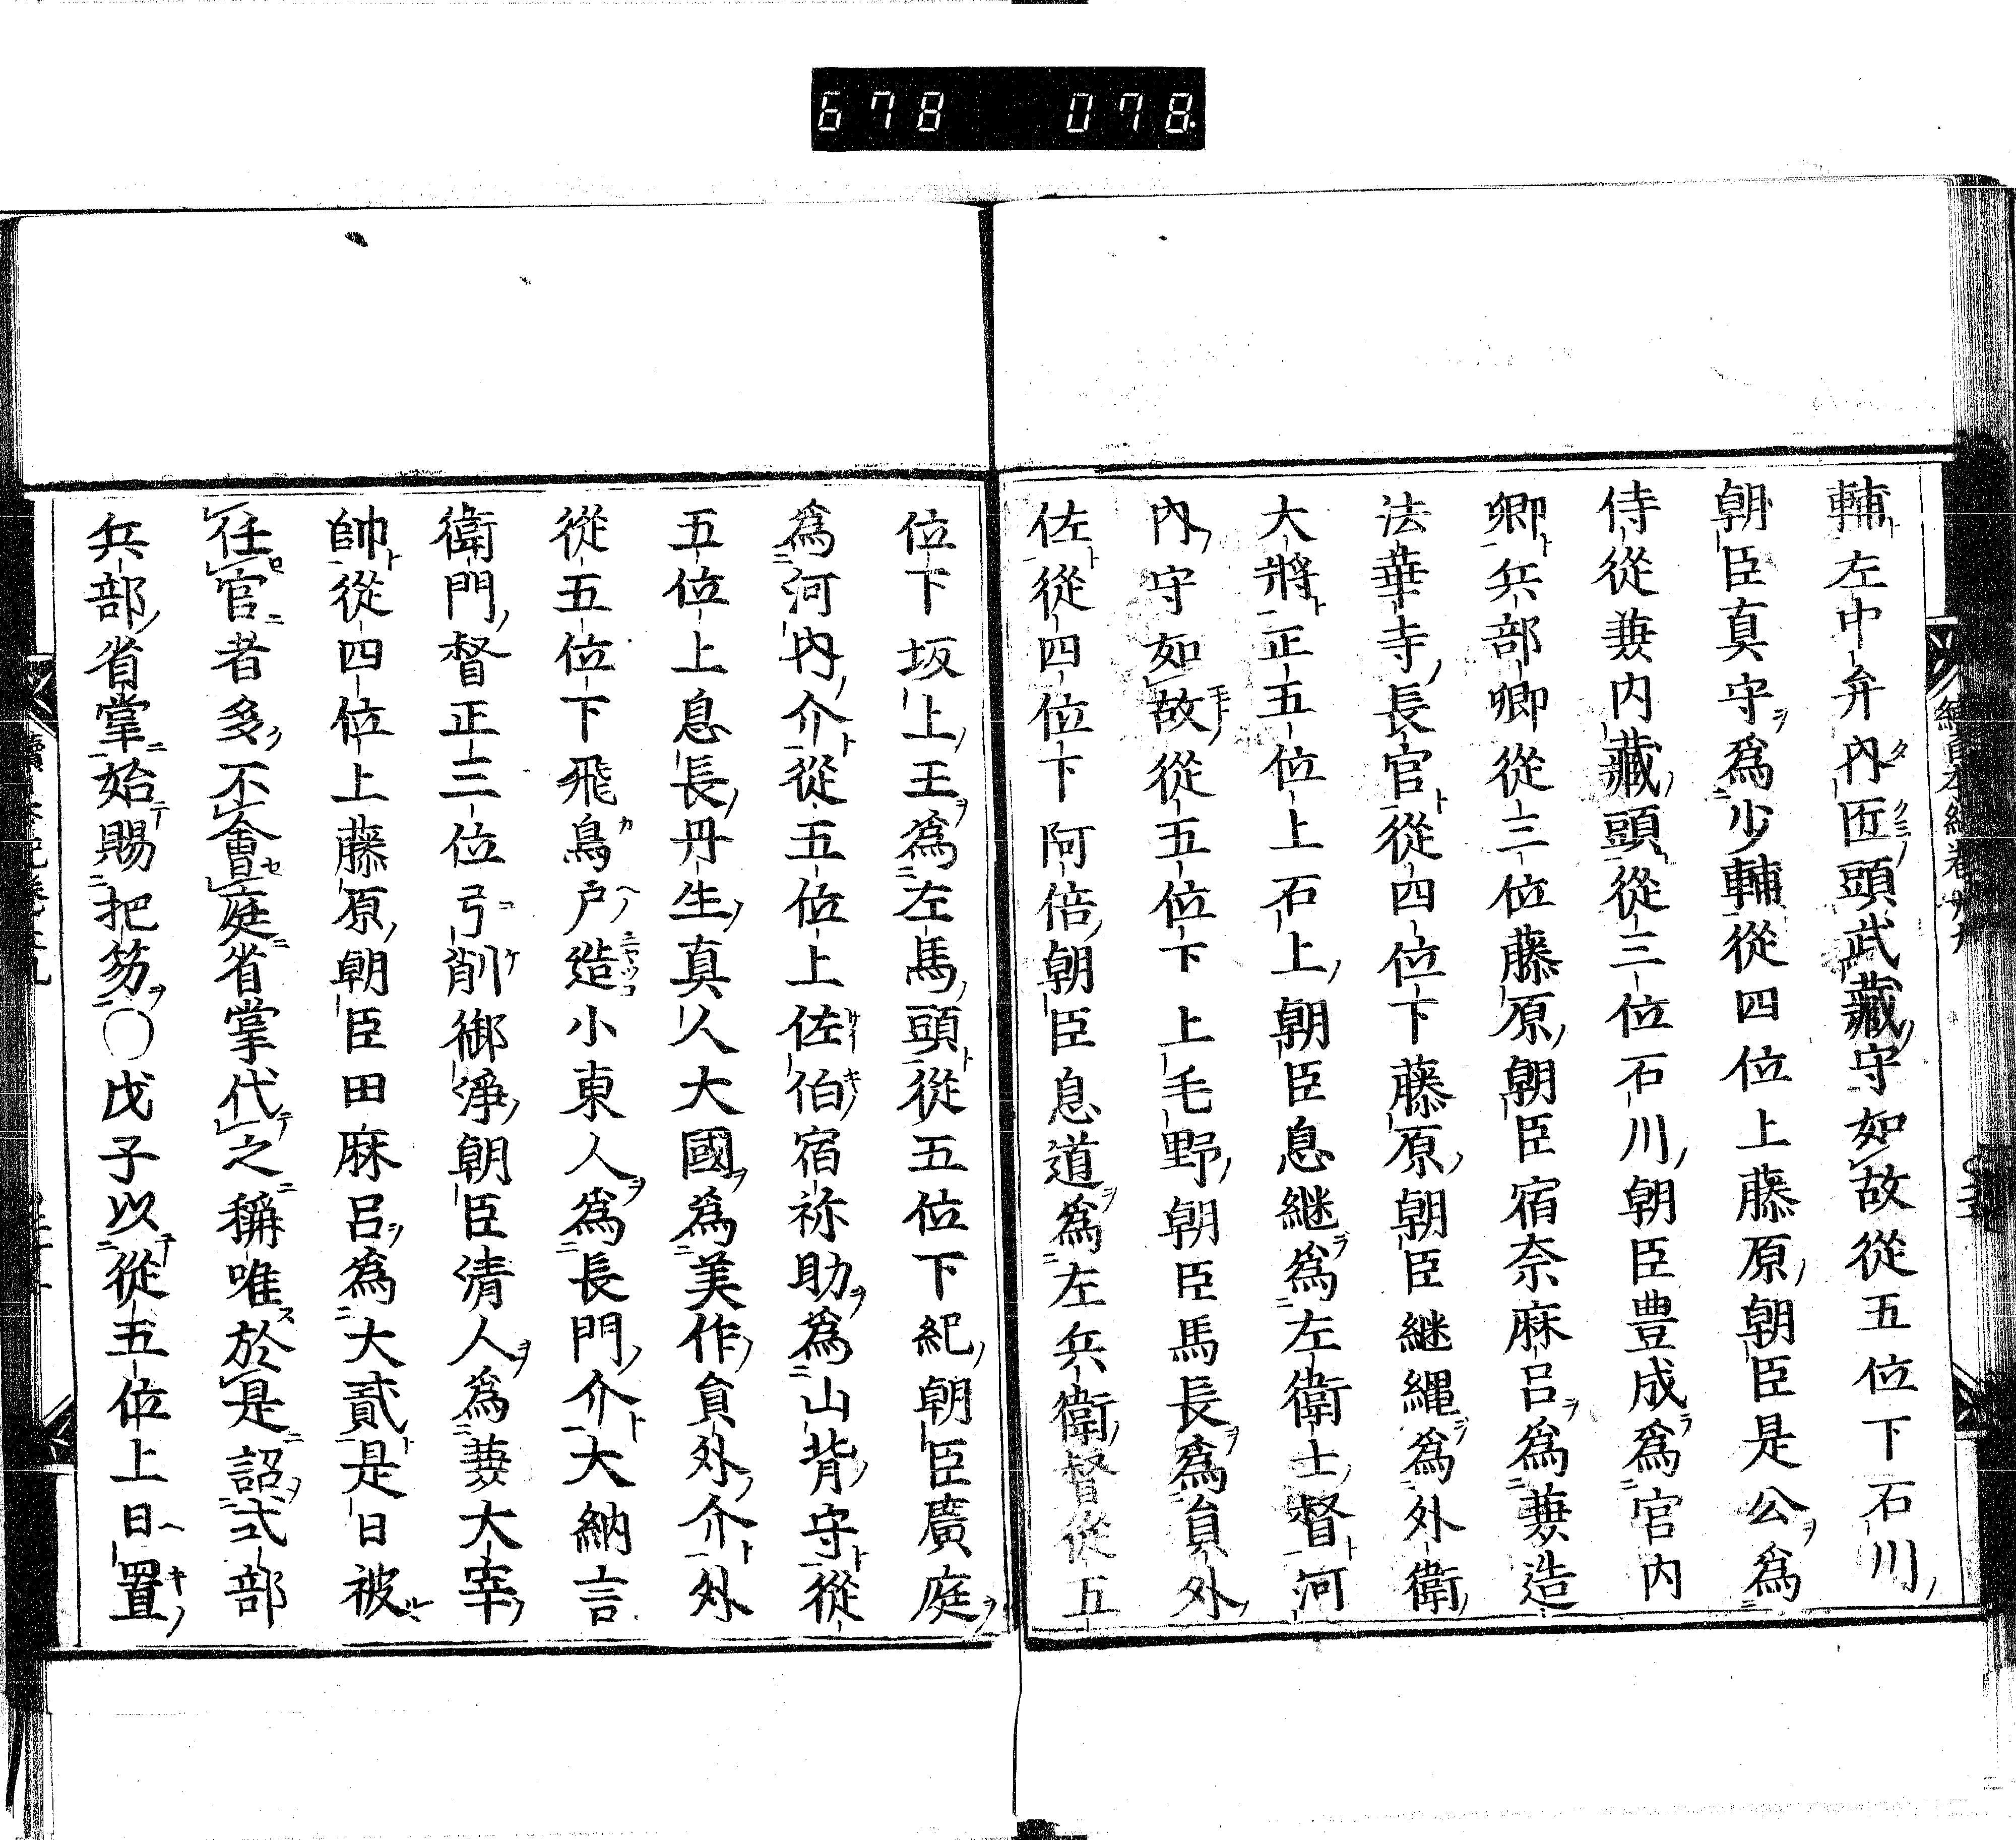 678 078
輔左中弁内匠頭武藏守如故從五位下石川
朝臣真守爲少輔從四位上藤原朝臣是公爲
侍從兼内藏頭從三位石川朝臣豊成爲宮内
卿兵部卿從三位藤原朝臣宿奈麻呂爲兼造
法華寺長官從四位下藤原朝臣継縄爲外衛
大將正五位上石上朝臣息継爲左衛士督河
内守如故從五位下上毛野朝臣馬長爲員外
佐從四位下阿倍朝臣息道爲左兵衛督從五
位下坂上王爲左馬頭從五位下紀朝臣廣庭
爲河内介從五位上佐伯宿祢助爲山背守從
五位上息長丹生真人大國爲美作員外介外
從五位下飛鳥戸造小東人爲長門介大納言
衛門督正三位弓削御淨朝臣清人爲兼大宰
帥從四位上藤原朝臣田麻呂爲大貳是日被
任官者多不會庭省掌代之稱唯於是詔式部
兵部省掌始賜把笏〇戊子以從五位上日置